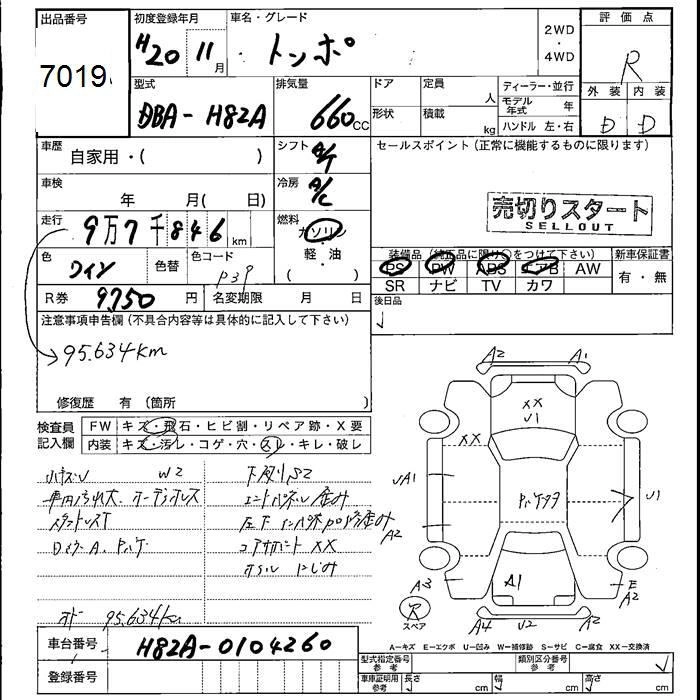 出品番号
7019
初度登録年月
H20 11月
車名・グレード
トッポ
2WD
・
4WD
評価点
R
外装 内装
D D
型式
DBA-H82A
排気量
660cc
ドア
定員
人
形状
積載
kg
ディーラー・並行
モデル年式 年
ハンドル 左・右
車歴
自家用・( )
シフト
A/T
セールスポイント(正常に機能するものに限ります)
売切りスタート
SELLOUT
車検
年 月( 日)
冷房
A/C
走行
9万7千846km
燃料
ガソリン
・
軽・油
( )
色
ワイン
色替
色コード
P39
装備品(純正品に限り○をつけて下さい)
PS PW ABS エアB AW
SR ナビ TV カワ
新車保証書
有・無
R券 9750円
名変期限 月 日
後日品
注意事項申告欄(不具合内容等は具体的に記入して下さい)
95.634km
修復歴 有 (箇所 )
検査員記入欄
FW キズ・飛石・ヒビ割・リペア跡・X要
内装 キズ・汚レ・コゲ・穴・スレ・キレ・破レ
小キズU W2
車内汚れ大 オーディオレス
スタットレスT
下廻りS2
コアサポートXX
オイルにじみ
95.634km
A2 A1
XX
U1
XX
UA1
A2
U1
A3
A1
E
A2
R
スペア
A4 U2 A2
A−キズ E−エクボ U−凹み W−補修跡 S−サビ C−腐食 XX−交換済
車台番号 H82A-0104260
登録番号
型式指定番号
参考
類別区分番号
参考
車庫証明用
参考
長さ cm 幅 cm 高さ cm